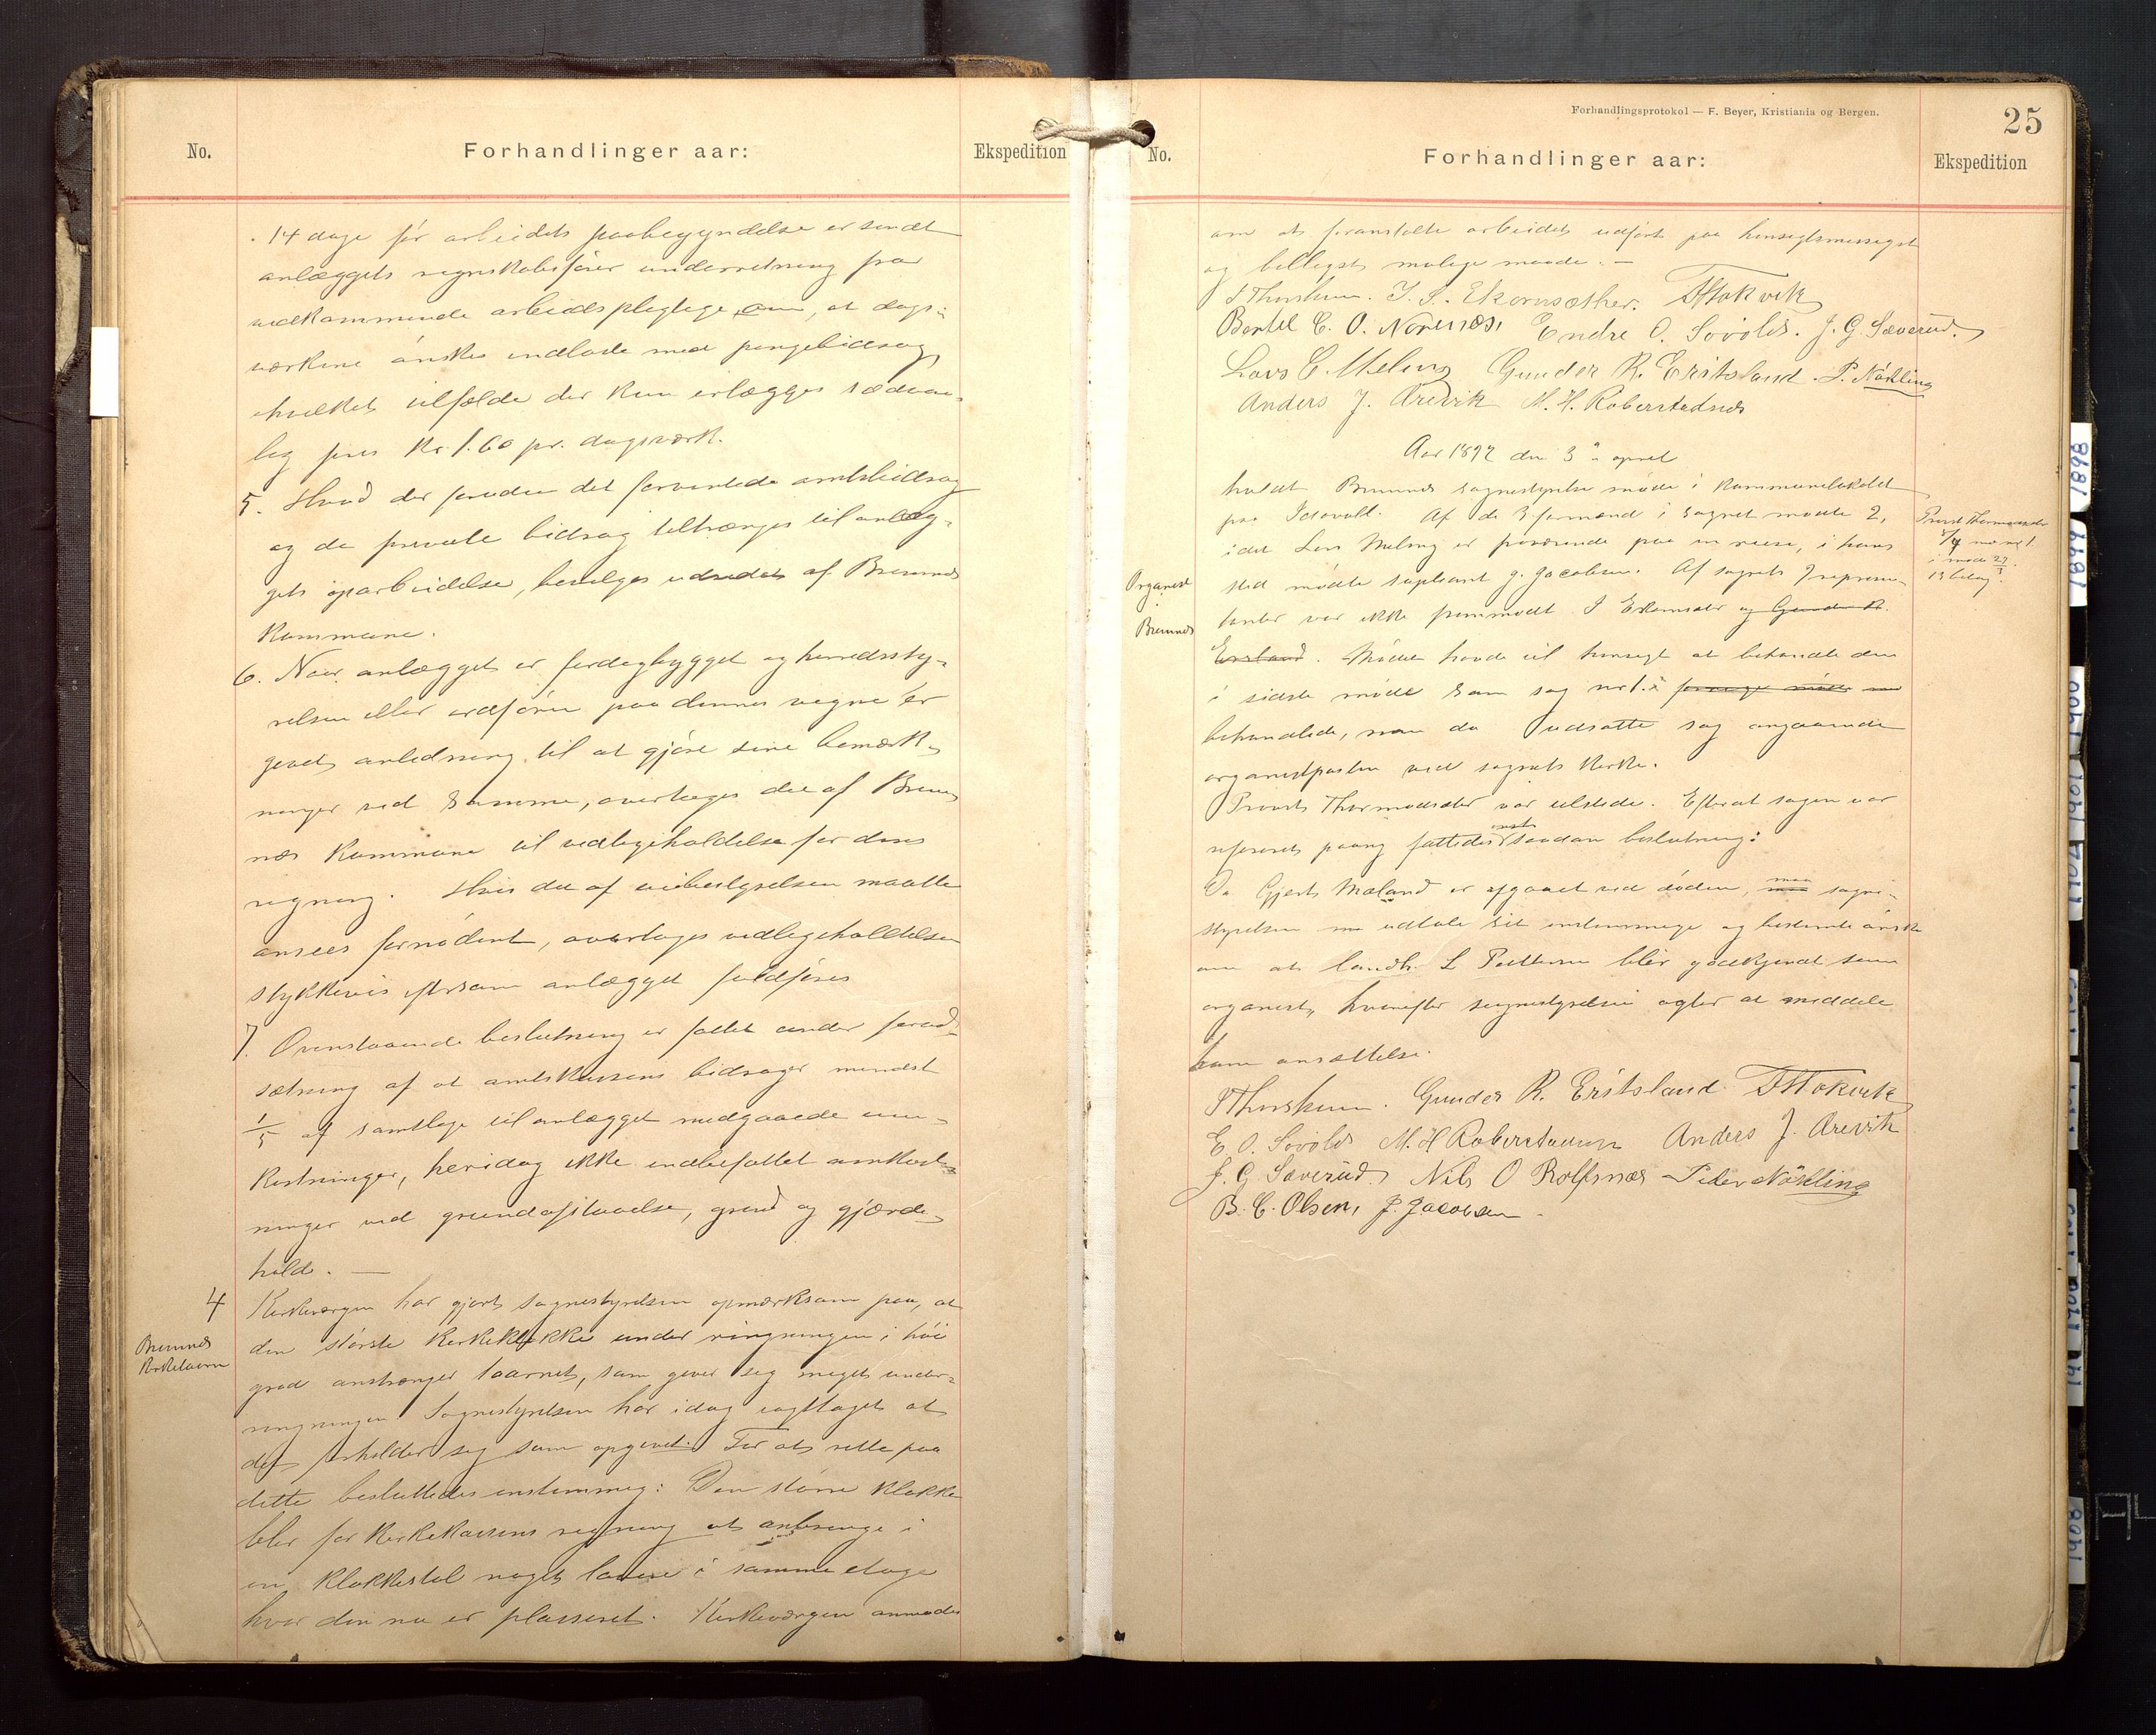 No.
Forhandlinger aar:
Ekspedition
14 dage før arbeidets paabegyndelse er sendt
anlæggets regnskabsfører underretning fra
vedkommende arbeidspligtige om, at dags-
værkene ønskes indløste med pengebidrag
hvilket tilfælde der kun erlægges sædvan-
lig pris Kr. 1.60 pr. dagsværk.
5. Hvad der foruden det forventede amtsbidrag
og de private bidrag tiltrænges til anlæg-
gets oparbeidelse, bevilges udredet af Bremnes
Kommune.
6. Naar anlægget er færdigbygget og herredssty-
relsen eller ordføren paa dennes vegne er
givet anledning til at gjøre sine bemærk-
ninger ved samme, overtages det af Brem-
nes Kommune til vedligeholdelse for dens
regning. Hvis det af veibestyrelsen maatte
ansees fornødent, overtages vedligeholdelsen
stykkevis eftersom anlægget fuldføres
7. Ovenstaaende beslutning er fattet under forud-
sætning af at amtskassens bidrager mindst
1/5 af samtlige til anlægget medgaaede om-
kostninger, heridag ikke indbefattet omkost-
ninger ved grundafstaaelse, grind og gjærde-
hold. —
4
Bremnes
Kirketaarn
Kirkeværgen har gjort sognestyrelsen opmærksom paa, at
den største Kirkeklokke under ringningen i høi
grad anstrænger taarnet, som giver sig meget under
ringningen. Sognestyrelsen har idag iagttaget at
det forholder sig som opgivet. For at rette paa
dette besluttedes enstemmig: Den større klokke
blir for Kirkekassens regning at anbringe i
en Klokkestol noget lavere i samme etage
hvor den nu er plasseret. Kirkeværgen anmodes
Forhandlingsprotokol — F. Beyer, Kristiania og Bergen.
25
No.
Forhandlinger aar:
Ekspedition
om at foranstalte arbeidet udført paa hensigtsmessigst
og billigst mulige maade. —
J Thorsheim. J. S. Ekornsæther. D Stokvik
Bertel C. O. Norenæs, Endre O. Sovold. J. G. Sæverud.
Lars C. Meling Gunder R. Eritsland. P. Nökling
Anders J. Arevik M. H. Roberstadnes
Aar 1897 den 3die april
holdt Bremnes sognestyrelse møde i Kommunelokalet
paa Idsovoll. Af de 3 formænd i sognet mødte 2,
idet Lars Meling er fraværende paa en reise, i hans
sted mødte supleant J. Jacobsen. Af sognets 9 represen-
tanter var ikke fremmødt J Ekornsæter og Gunder R.
Eritsland. Mødet havde til hensigt at behandle den
i sidste møde som sag no 1. i forrige møde
behandlede, men da udsatte sag angaaende
organistposten ved sognets Kirke.
Provst Thormodsæter var tilstede. Efterat sagen var
refereret paany fattedes saadan beslutning:
Da Gjert Mæland er afgaaet ved døden, maa sogne-
styrelsen udtale sit enstemmige og bestemte ønske
om at landh. L Pettersen blir godkjendt som
organist, hvorefter sognestyrelsen agter at meddele
ham ansættelse.
Organist
i
Bremnes
Provst Thormodsæter
i møde
13 bilag.
J Thorsheim. Gunder R. Eritsland D Stokvik
E. O. Sovold M. H Roberstadnes Anders J. Arevik
J. G Sæverud. Nils O Rolfsnæs Peder Nökling
B. C. Olsen, J. Jacobsen
1898
1899
1900
1901
1902
1908